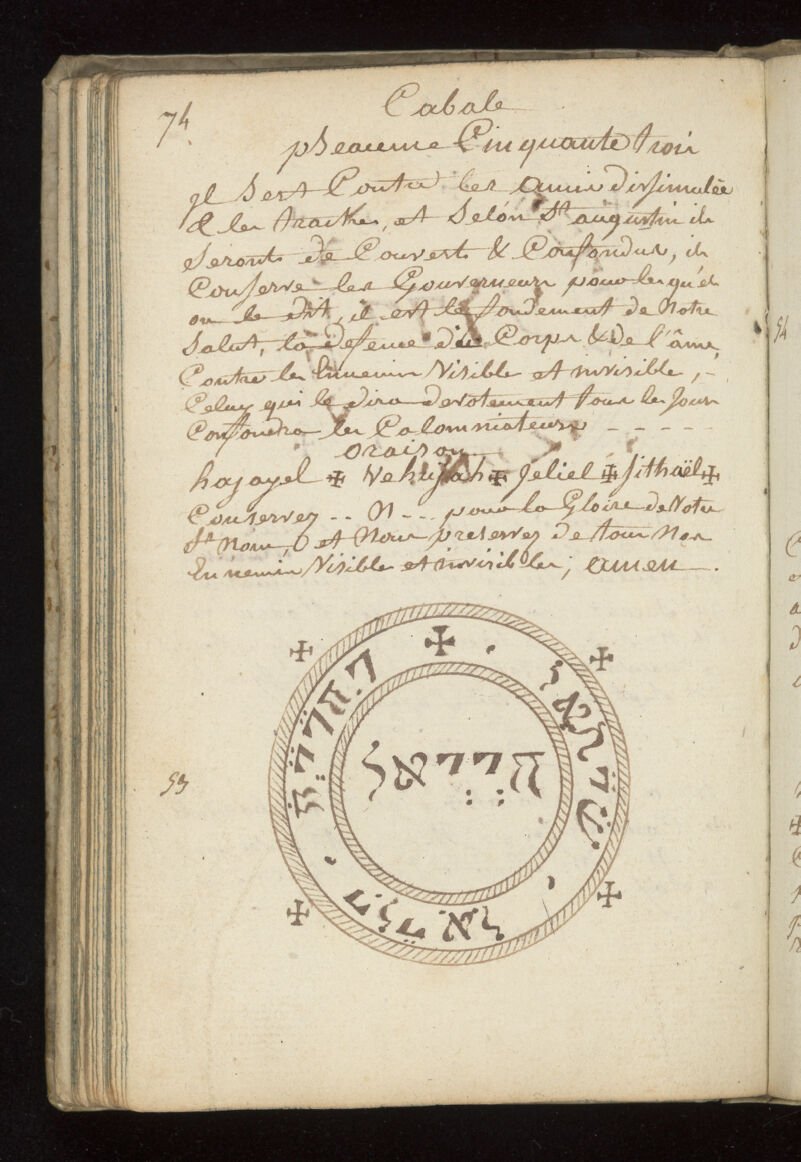 74
Cabale
pseaume Cinquante trois
jl sert Contre les amis dissimulée
& les traitres, et Selon St augustin ils
Seronts de Couverts & Confondus, il
Conserve les Gouverneurs pour lesquels
on le dit, il est le fondement de Notre
Salut, la defence du Corps & de l'âme
Contre les Ennemis Visible et invisible, -
Celuy qui le dira devotement tous les Jours
Confondra les Calomniateurs - - - - -
oraison
hajayel ✠ Vehujah ✠ Jeliel ✠ Sithaël ✠
Conservez .. N ... pour la Gloire de Notre
St Nom, et Nous preservez de tous Nos
Ennemis Visible et invisibles, amen .
53
54